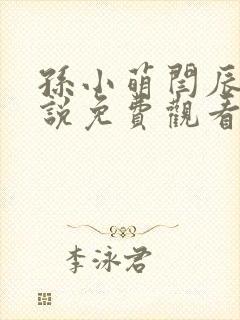 孫小萌閆辰
說免費觀看
李泳君